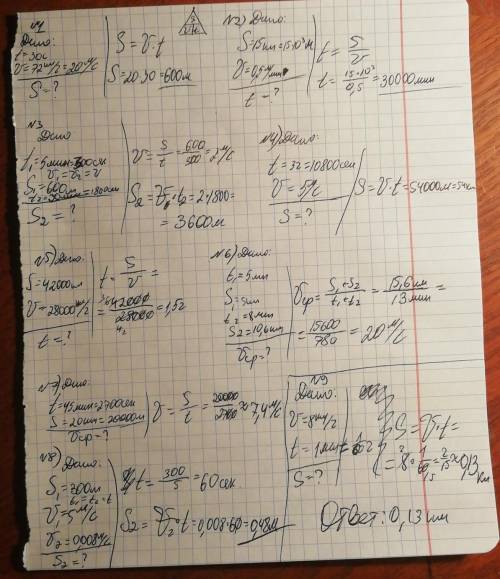 №1
Дано:
t=30с
V=72км/ч=20м/с
S=?
S=V·t
S=20·30=600м
№2) Дано:
S=15км=15·10³м
V=0,5м/мин
t=?
t=S/V
t=15·10³/0,5=30000мин
№3
Дано
t₁=5мин=300сек
V₁=V₂=V
S₁=600м
t₂=30мин=1800сек
S₂=?
V=S/t=600/300=2м/с
S₂=V·t₂=2·1800=
=3600м
№4) Дано:
t=3ч=10800сек
V=5м/с
S=?
S=V·t=54000м=54км
№5) Дано:
S=42000м
V=28000м/ч
t=?
t=S/V=
=42000/28000=1,5ч
№6) Дано:
t₁=5мин
S₁=5км
t₂=8мин
S₂=10,6км
Vср=?
Vср=S₁+S₂/t₁+t₂=15,6км/13мин=
=15600/780=20м/с
№7) Дано:
t=45мин=2700сек
S=20км=20000м
Vср=?
V=S/t=20000/2700≈7,4м/с
№8) Дано:
S₁=300м
t₁=t₂=t
V₁=5м/с
V₂=0,008м/с
S₂=?
t=300/5=60сек.
S₂=V₂·t=0,008·60=0,48м
№9
Дано:
V=8км/ч
t=1мин=1/60ч
S=?
S=V·t=
=8·1/60=2/15≈0,13
км
Ответ: 0,13км